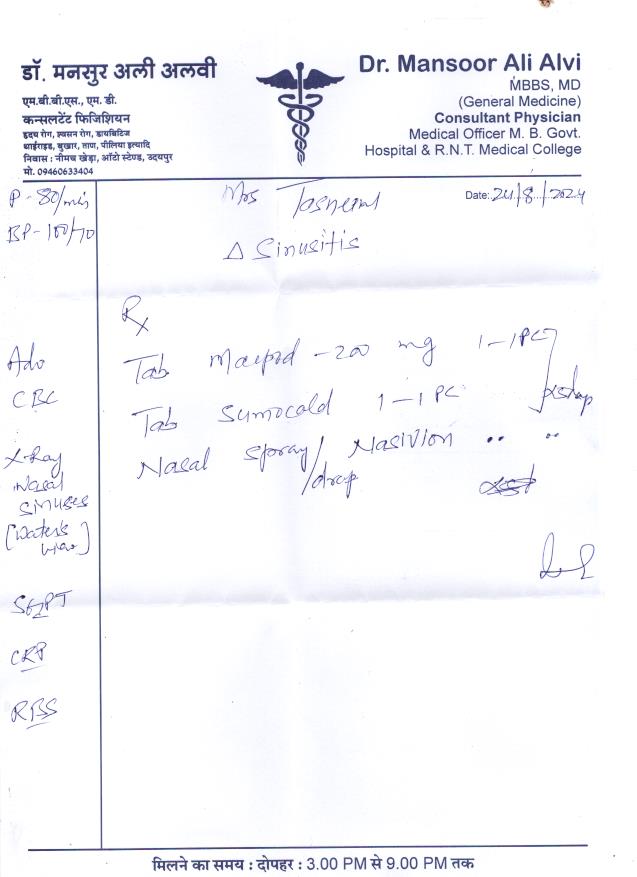 डॉ. मनसुर अली अलवी
एम.बी.बी.एस., एम. डी.
कन्सलटेंट फिजिशियन
हृदय रोग, श्वसन रोग, डायबिटिज
थाईराइड, बुखार, ताण, पीलिया इत्यादि
निवास : नीमच खेड़ा, ऑटो स्टेण्ड, उदयपुर
मो. 09460633404
Dr. Mansoor Ali Alvi
MBBS, MD
(General Medicine)
Consultant Physician
Medical Officer M. B. Govt.
Hospital & R.N.T. Medical College
P - 80/min
BP - 100/70
Mrs Tasneem
Date: 24/8/2024
Δ Sinusitis
Rx
Adv
CBC
X-Ray
Nasal
sinuses
[Water's
view]
SGPT
CRP
RBS
Tab - 200 mg 1-1 PC
Tab Sumocold 1-1 PC
Nasal spray/ Nasivion .. ..
/drop
मिलने का समय : दोपहर : 3.00 PM से 9.00 PM तक